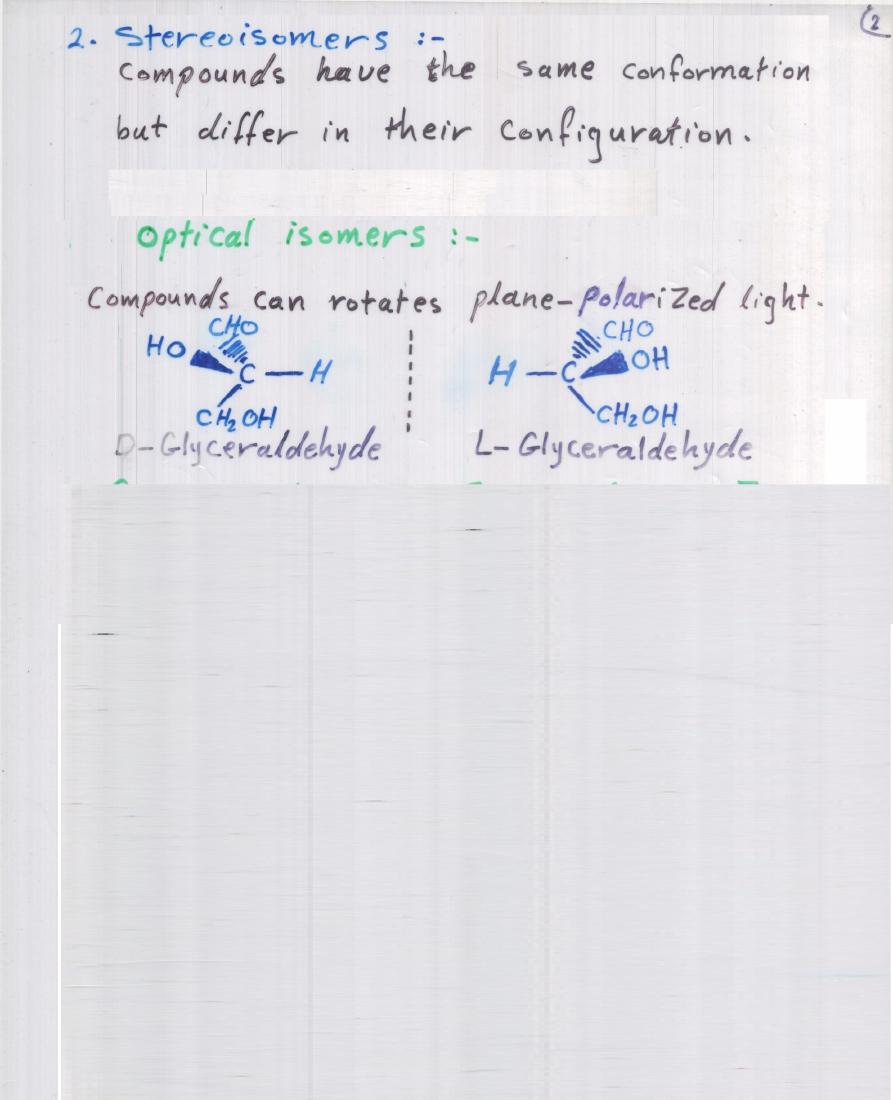 (2
2. Stereoisomers :-
Compounds have the same conformation
but differ in their configuration.
Optical isomers :-
Compounds can rotates plane-Polarized light.
CHO CHO
HO C — H H — C OH
CH₂OH CH₂OH
D-Glyceraldehyde L-Glyceraldehyde